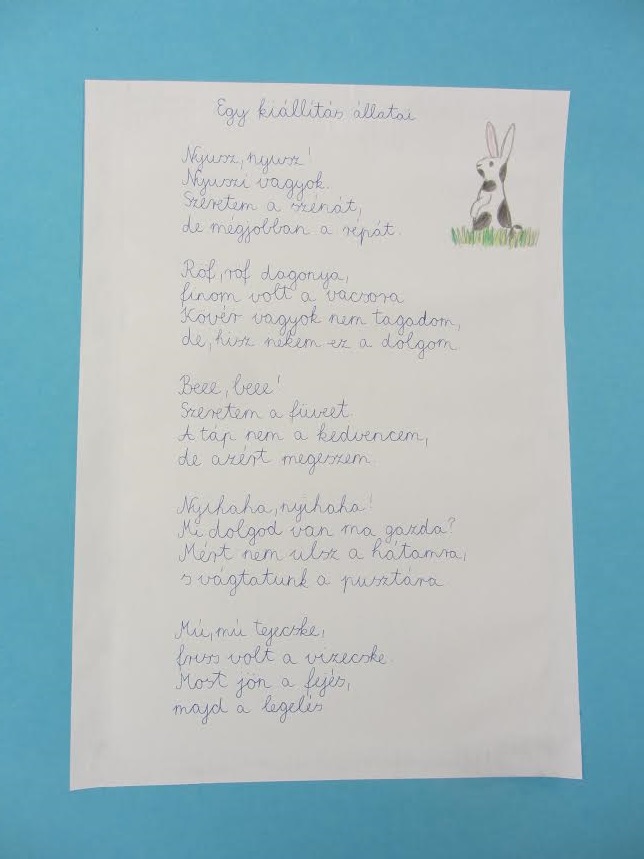 Egy kiállítás állatai
Nyusz, nyusz!
Nyuszi vagyok.
Szeretem a szénát,
de mégjobban a répát.
Röf, röf dagonya,
finom volt a vacsora
Kövér vagyok nem tagadom,
de, hisz nekem ez a dolgom
Beee, beee!
Szeretem a füvet.
A táp nem a kedvencem,
de azért megeszem.
Nyihaha, nyihaha!
Mi dolgod van ma gazda?
Mért nem ülsz a hátamra,
s vágtatunk a pusztára
Mú, mú tejecske,
friss volt a vizecske.
Most jön a fejés,
majd a legelés